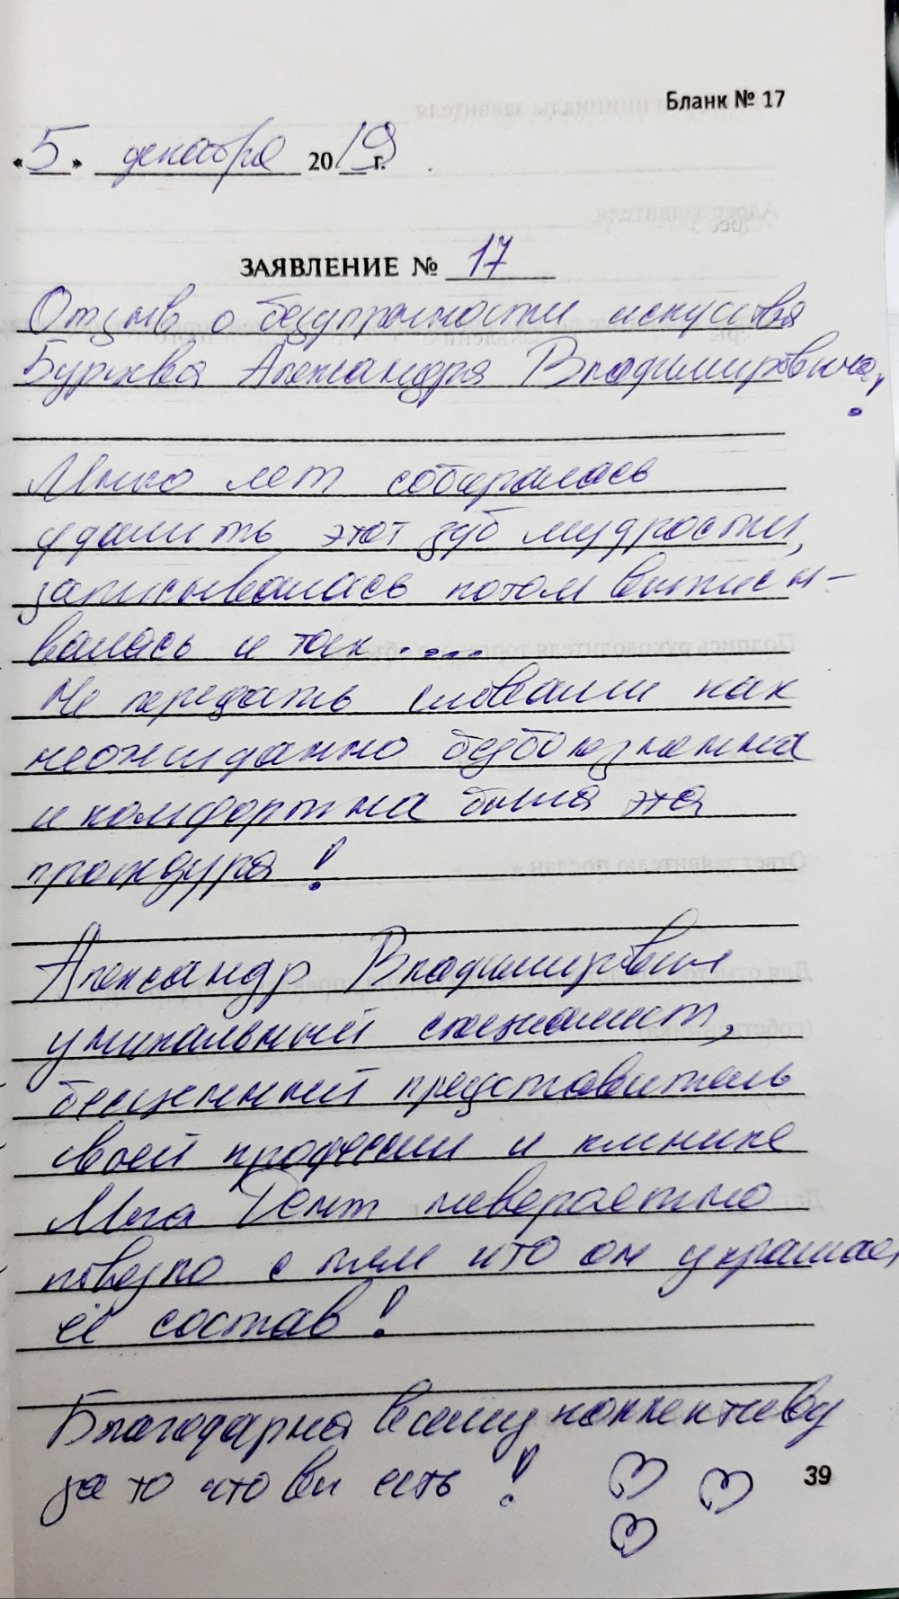 Бланк № 17
«5» декабря 2019 г.
ЗАЯВЛЕНИЕ № 17
Отзыв о безупречности искусства
Александра Владимировича!
Много лет собиралась
удалить этот зуб мудрости,
записывалась потом выписы-
валась и так.....
Не передать словами как
неожиданно безболезненна
и комфортна была эта
процедура!
Александр Владимирович
уникальный специалист,
бесценный представитель
своей профессии и клинике
Мега Дент невероятно
повезло с тем что он украшает
её состав!
Благодарна всему коллективу
за то что вы есть!
39